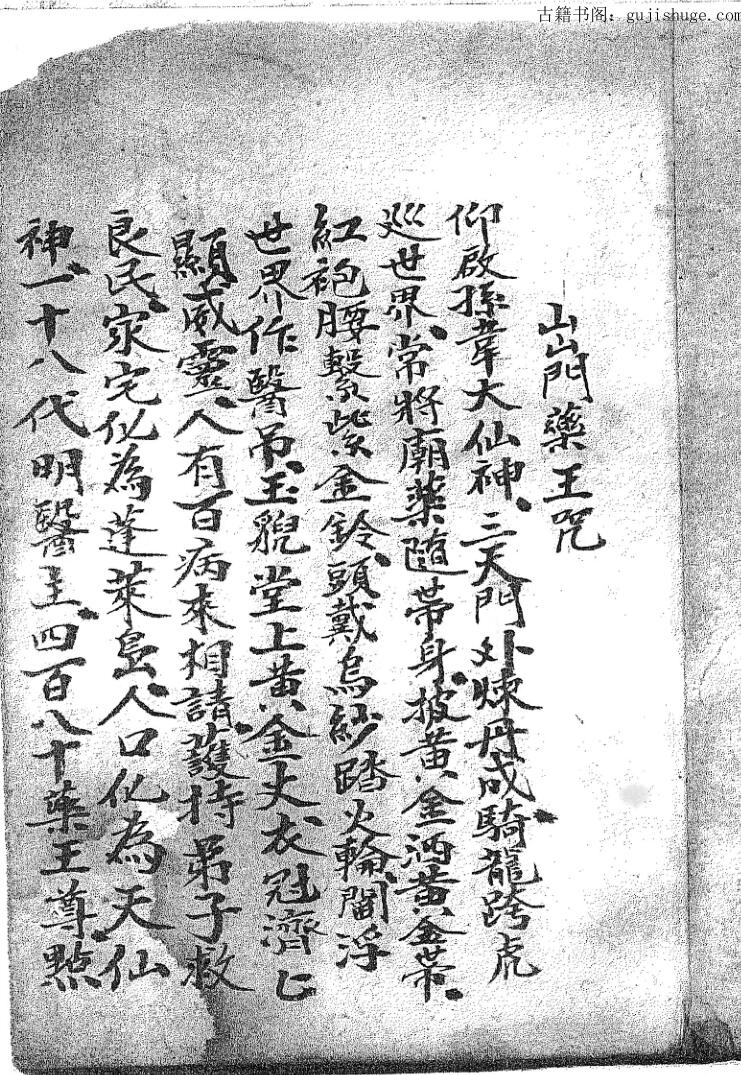 古籍书阁：gujishuge.com
山山門藥王咒
仰啟孫韋大仙神、三天門外煉丹成、騎龍跨虎
巡世界、常將廟藥隨帶身、披黃金洒黃金帶、
紅袍腰繫紫金鈴、頭戴烏紗踏火輪、閻浮
世界作醫吊、玉貎堂上黃金丈、衣冠濟匕
顯威靈、人有百病來相請、護持弟子救
良民、家宅化為蓬萊島、人口化為天仙
神、一十八代明醫主、四百八十藥王尊、點